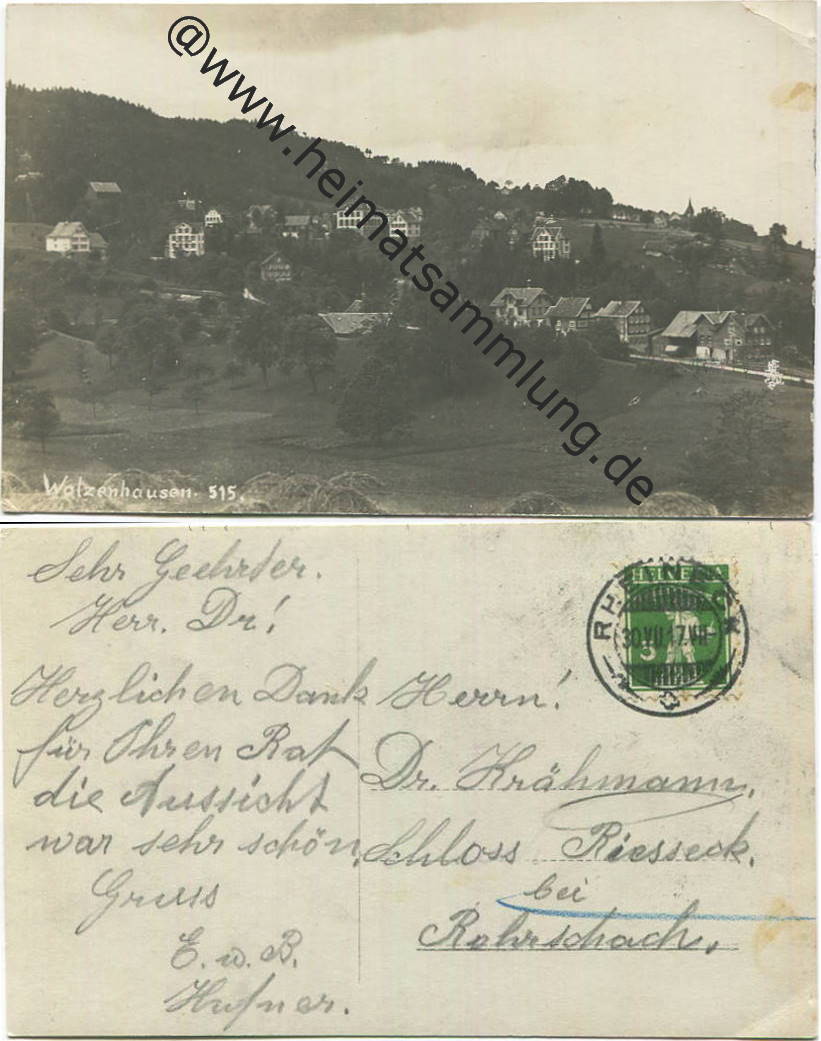 @www.heimatsammlung.de
Walzenhausen. 515.
Sehr Geehrter.
Herr. Dr!
Herzlichen Dank
für Ihren Rat
die Aussicht
war sehr schön.
Gruss
E. u. B.
Hufner.
RHEINECK
30.VII.17.VII-
HELVETIA
5
Herrn!
Dr. Krähmann,
Schloss Riesseck.
bei
Rohrschach.